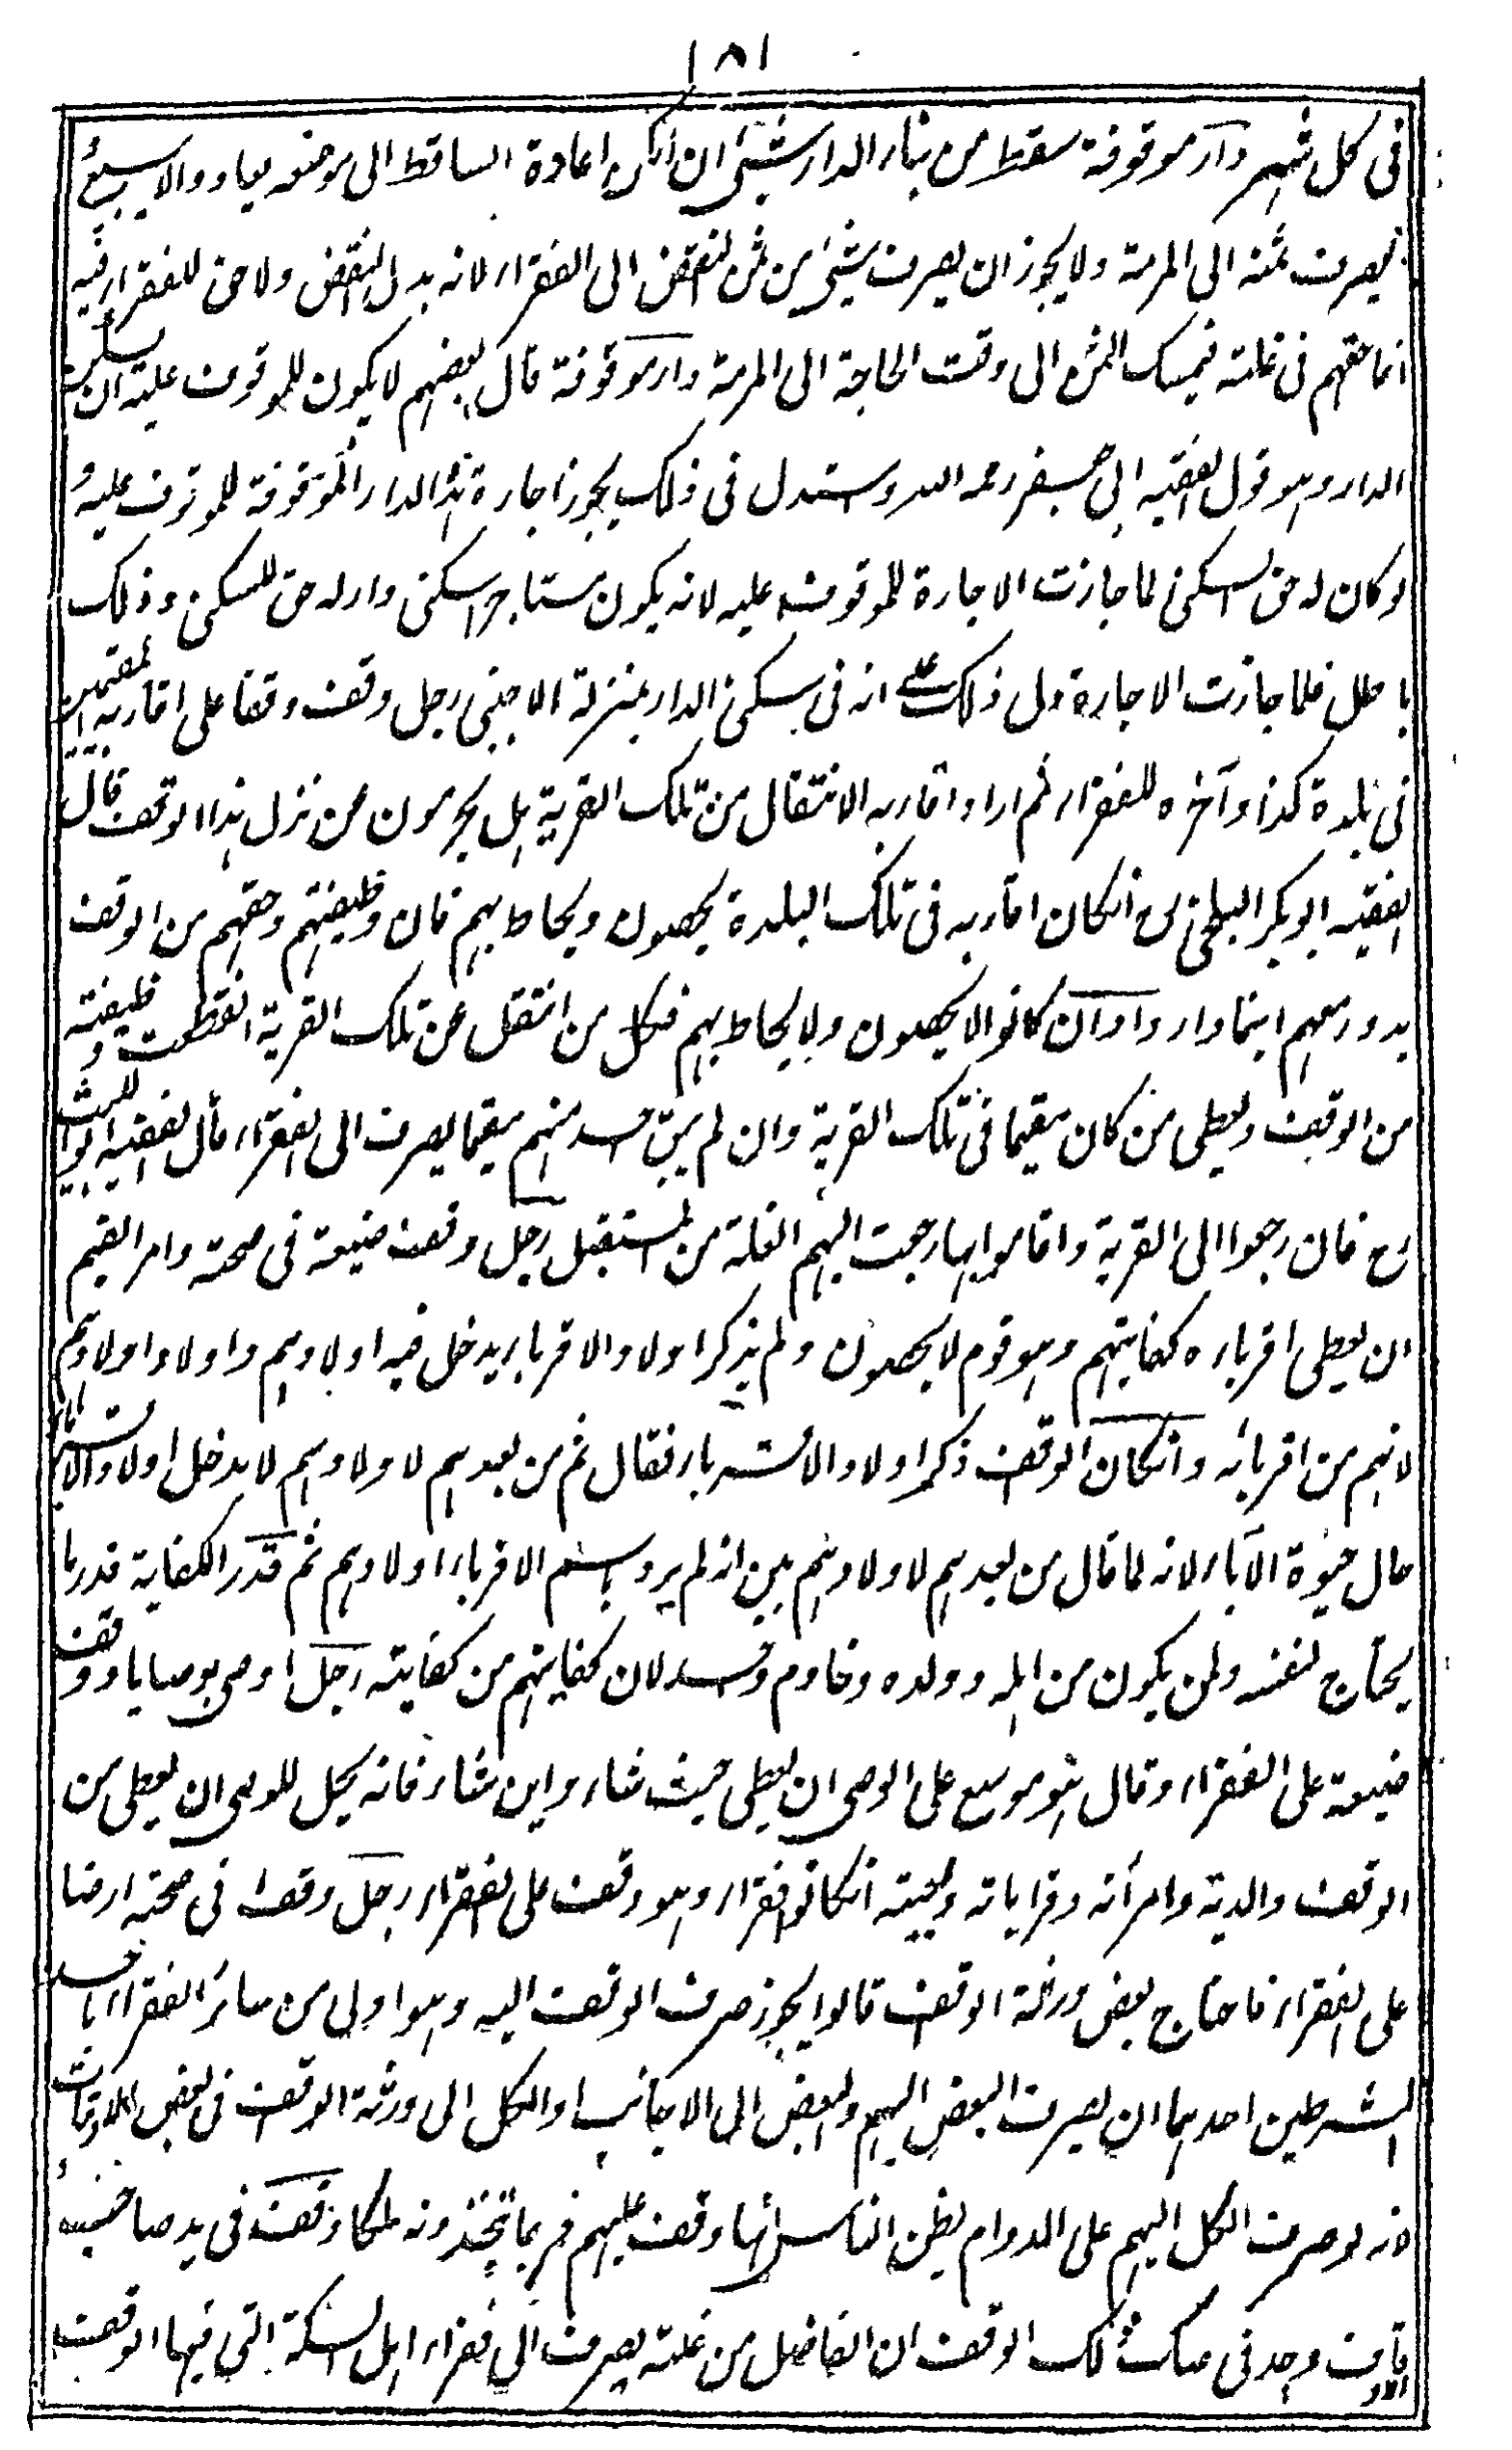 ١٨١
فى كل شهر دار موقوفة سقط من بناء الدار شيئ ان امكن اعادة الساقط الى موضعه يعاد والا يبيع
فيصرف ثمنه الى المرمة ولا يجوز ان يصرف شيئ من ثمن النقض الى الفقراء لانه بدل النقض ولا حق للفقراء فيه
انما حقهم فى غلته فيمسك الثمن الى وقت الحاجة الى المرمة دار موقوفة قال بعضهم لا يكون للموقوف عليه ان يسكن
الدار وهو قول الفقيه ابى جعفر رحمه الله واستدل فى ذلك يجوز اجارة هذا الدار الموقوفة للموقوف عليه و
لو كان له حق السكنى لما جازت الاجارة للموقوف عليه لانه يكون مستاجرا سكنى دار له حق السكنى وذلك
باطل فلما جازت الاجارة دل ذلك على انه فى سكنى الدار بمنزلة الاجنبى رجل وقف وقفا على اقاربه المقيمين
فى بلدة كذا وآخره للفقراء ثم اراد اقاربه الانتقال من تلك القرية هل يحرمون عن نزل هذا الوقف قال
الفقيه ابو بكر البلخى رح انكان اقاربه فى تلك البلدة يحصون ويحاط بهم فان وظيفتهم وحقهم من الوقف
يدور معهم اينما داروا وان كانوا لا يحصون ولا يحاط بهم فكل من انتقل عن تلك القرية انقطعت وظيفته
من الوقف ويعطى من كان مقيما فى تلك القرية وان لم يبق احد منهم مقيما يصرف الى الفقراء قال الفقيه ابو الليث
رح فان رجعوا الى القرية واقاموا بها رجعت اليهم الغلة من المستقبل رجل وقف ضيعة فى صحته وامر القيم
ان يعطى اقرباءه كفايتهم وهو قوم لا يحصون ولم يذكر اولاد الاقرباء يدخل فيه اولادهم واولاد اولادهم
لانهم من اقربائه وانكان الوقف ذكر اولاد الاقرباء فقال ثم من بعدهم لاولادهم لا يدخل اولاد الاقرباء
حال حيوة الآباء لانه لما قال من بعدهم لاولادهم بين انه لم يرد باسم الاقرباء اولادهم ثم قدر الكفاية قدر ما
يحتاج لنفسه ولمن يكون من اهله وولده وخادم واحد لان كفايتهم من كفايته رجل اوصى بوصايا ووقف
ضيعة على الفقراء وقال هو موسع على الوصى ان يعطى حيث شاء واين شاء فانه يحل للوصى ان يعطى من
الوقف والديه وامرأته وقراباته ولحيته انكانوا فقراء وهو وقف على الفقراء رجل وقف فى صحته ارضا
على الفقراء فاحتاج بعض ورثة الوقف قالوا يجوز صرف الوقف اليه وهو اولى من سائر الفقراء باحد
الشرطين احدهما ان يصرف البعض اليهم والبعض الى الاجانب او الكل الى ورثة الوقف فى بعض الاوقات
لانه لو صرف الكل اليهم على الدوام يظن الناس انها وقف عليهم فربما يتخذونه ملكا وقف فى يد صاحبه
الاوقاف وجد فى صك ذلك الوقف ان الفاضل من غلته يصرف الى فقراء اهل السكة التى فيها الوقف